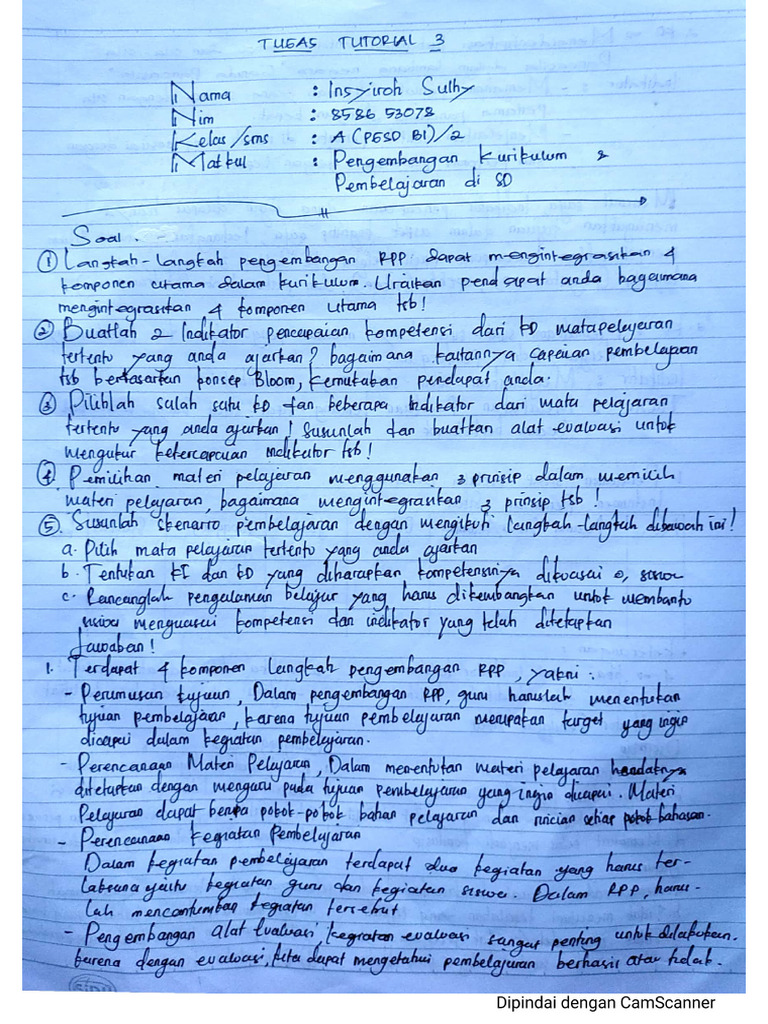 TUGAS TUTORIAL 3
Nama : Insyiroh Sulhy
Nim : 8586 53078
Kelas/sms : A (PGSD BI)/2
Matkul : Pengembangan Kurikulum &
Pembelajaran di SD
Soal.
① Langkah-langkah pengembangan RPP dapat mengintegrasikan 4
komponen utama dalam kurikulum. Uraikan pendapat anda bagaimana
mengintegrasikan 4 komponen utama tsb!
② Buatlah 2 Indikator pencapaian kompetensi dari KD matapelajaran
tertentu yang anda ajarkan? bagaimana kaitannya capaian pembelajaran
tsb berdasarkan konsep Bloom, kemukakan pendapat anda.
③ Pilihlah salah satu KD dan beberapa indikator dari mata pelajaran
tertentu yang anda ajarkan! Susunlah dan buatkan alat evaluasi untuk
mengukur ketercapaian indikator tsb!
④ Pemilihan materi pelajaran menggunakan 3 prinsip dalam memilih
materi pelajaran, bagaimana mengintegrasikan 3 prinsip tsb!
⑤ Susunlah skenario pembelajaran dengan mengikuti langkah-langkah dibawah ini!
a. Pilih mata pelajaran tertentu yang anda ajarkan
b. Tentukan KI dan KD yang diharapkan kompetensinya dikuasai siswa
c. Rancanglah pengalaman belajar yang harus dikembangkan untuk membantu
siswa menguasai kompetensi dan indikator yang telah ditetapkan
Jawaban!
1. Terdapat 4 komponen langkah pengembangan RPP, yakni :
- Perumusan tujuan, Dalam pengembangan RPP, guru haruslah menentukan
tujuan pembelajaran, karena tujuan pembelajaran merupakan target yang ingin
dicapai dalam kegiatan pembelajaran.
- Perencanaan Materi Pelajaran, Dalam menentukan materi pelajaran hendaknya
ditetapkan dengan mengacu pada tujuan pembelajaran yang ingin dicapai. Materi
Pelajaran dapat berupa pokok-pokok bahan pelajaran dan rincian setiap pokok bahasan.
- Perencanaan kegiatan Pembelajaran
Dalam kegiatan pembelajaran terdapat dua kegiatan yang harus ter-
laksana yaitu kegiatan guru dan kegiatan siswa. Dalam RPP, harus-
lah mencantumkan kegiatan tersebut
- Pengembangan alat Evaluasi, kegiatan evaluasi sangat penting untuk dilakukan.
karena dengan evaluasi, kita dapat mengetahui pembelajaran berhasil atau tidak.
Dipindai dengan CamScanner